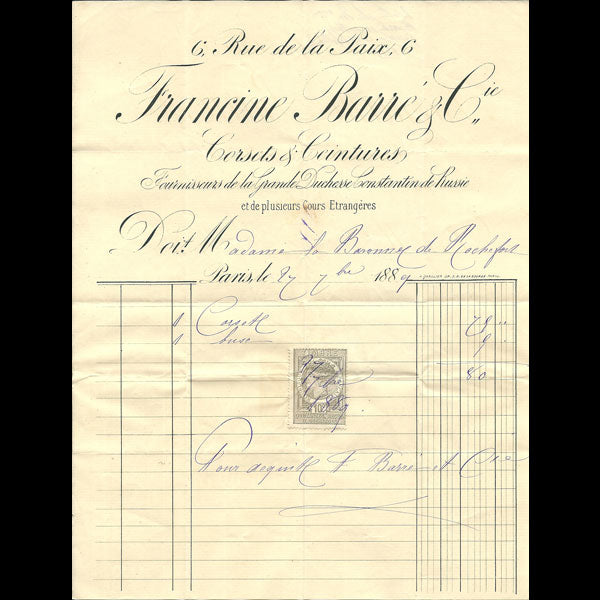 6, Rue de la Paix, 6
Francine Barré & Cie
Corsets & Ceintures
Fournisseurs de la Grande Duchesse Constantin de Russie
et de plusieurs Cours Etrangères
Doit Madame la Baronne de Rochefort
Paris, le 27 7bre 1889
1 Corset 78 "
1 busc
80
27
7bre
1889
10c
Pour acquit F Barré et Cie